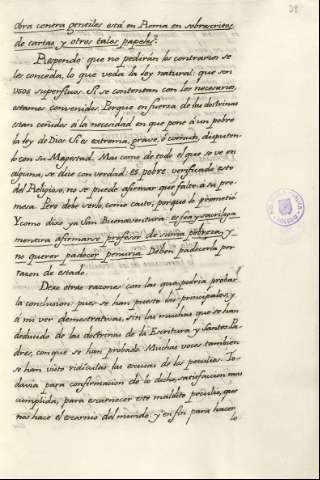 obra contra gentiles está en Roma en sobrescritos
de cartas y otros tales papeles?
Respondo que no pedirán los contrarios se
les conceda, lo que veda la ley natural: que son
usos superfluos. Si se contentan con los necesarios,
estamos convenidos. Porque en fuerza de las doctrinas
estan ceñidos á la necesidad en que pone á un pobre
la ley de Dios. Si es extrema, grave, ó comun, disputen-
lo con su Magestad. Mas como de todo el que se ve en
alguna, se dice con verdad: es pobre, verificado esto
del Religioso, no se puede afirmar que falte á su pro-
mesa. Pero debe verlo, como cauto, porque lo prometió.
Y como dixo ya San Buenaventura: es fea y sacrilega
mentira afirmarse profesor de suma pobreza, y
no querer padecer penuria. Deben padecerla por
razon de estado.
Dexo otras razones con las que podria probar
la conclusion: pues se han puesto las principales, y
á mi ver demostrativas, sin las muchas que se han
deducido de las doctrinas de la Escritura y Santos Pa-
dres, con que se han probado. Muchas veces tambien
se han visto ridículas las excusas de los peculios. To-
davia para confirmacion de lo dicho, satisfaccion mas
cumplida, para escarnecer este maldito peculio, que
nos hace el escarnio del mundo: y en fin para hacer
lo